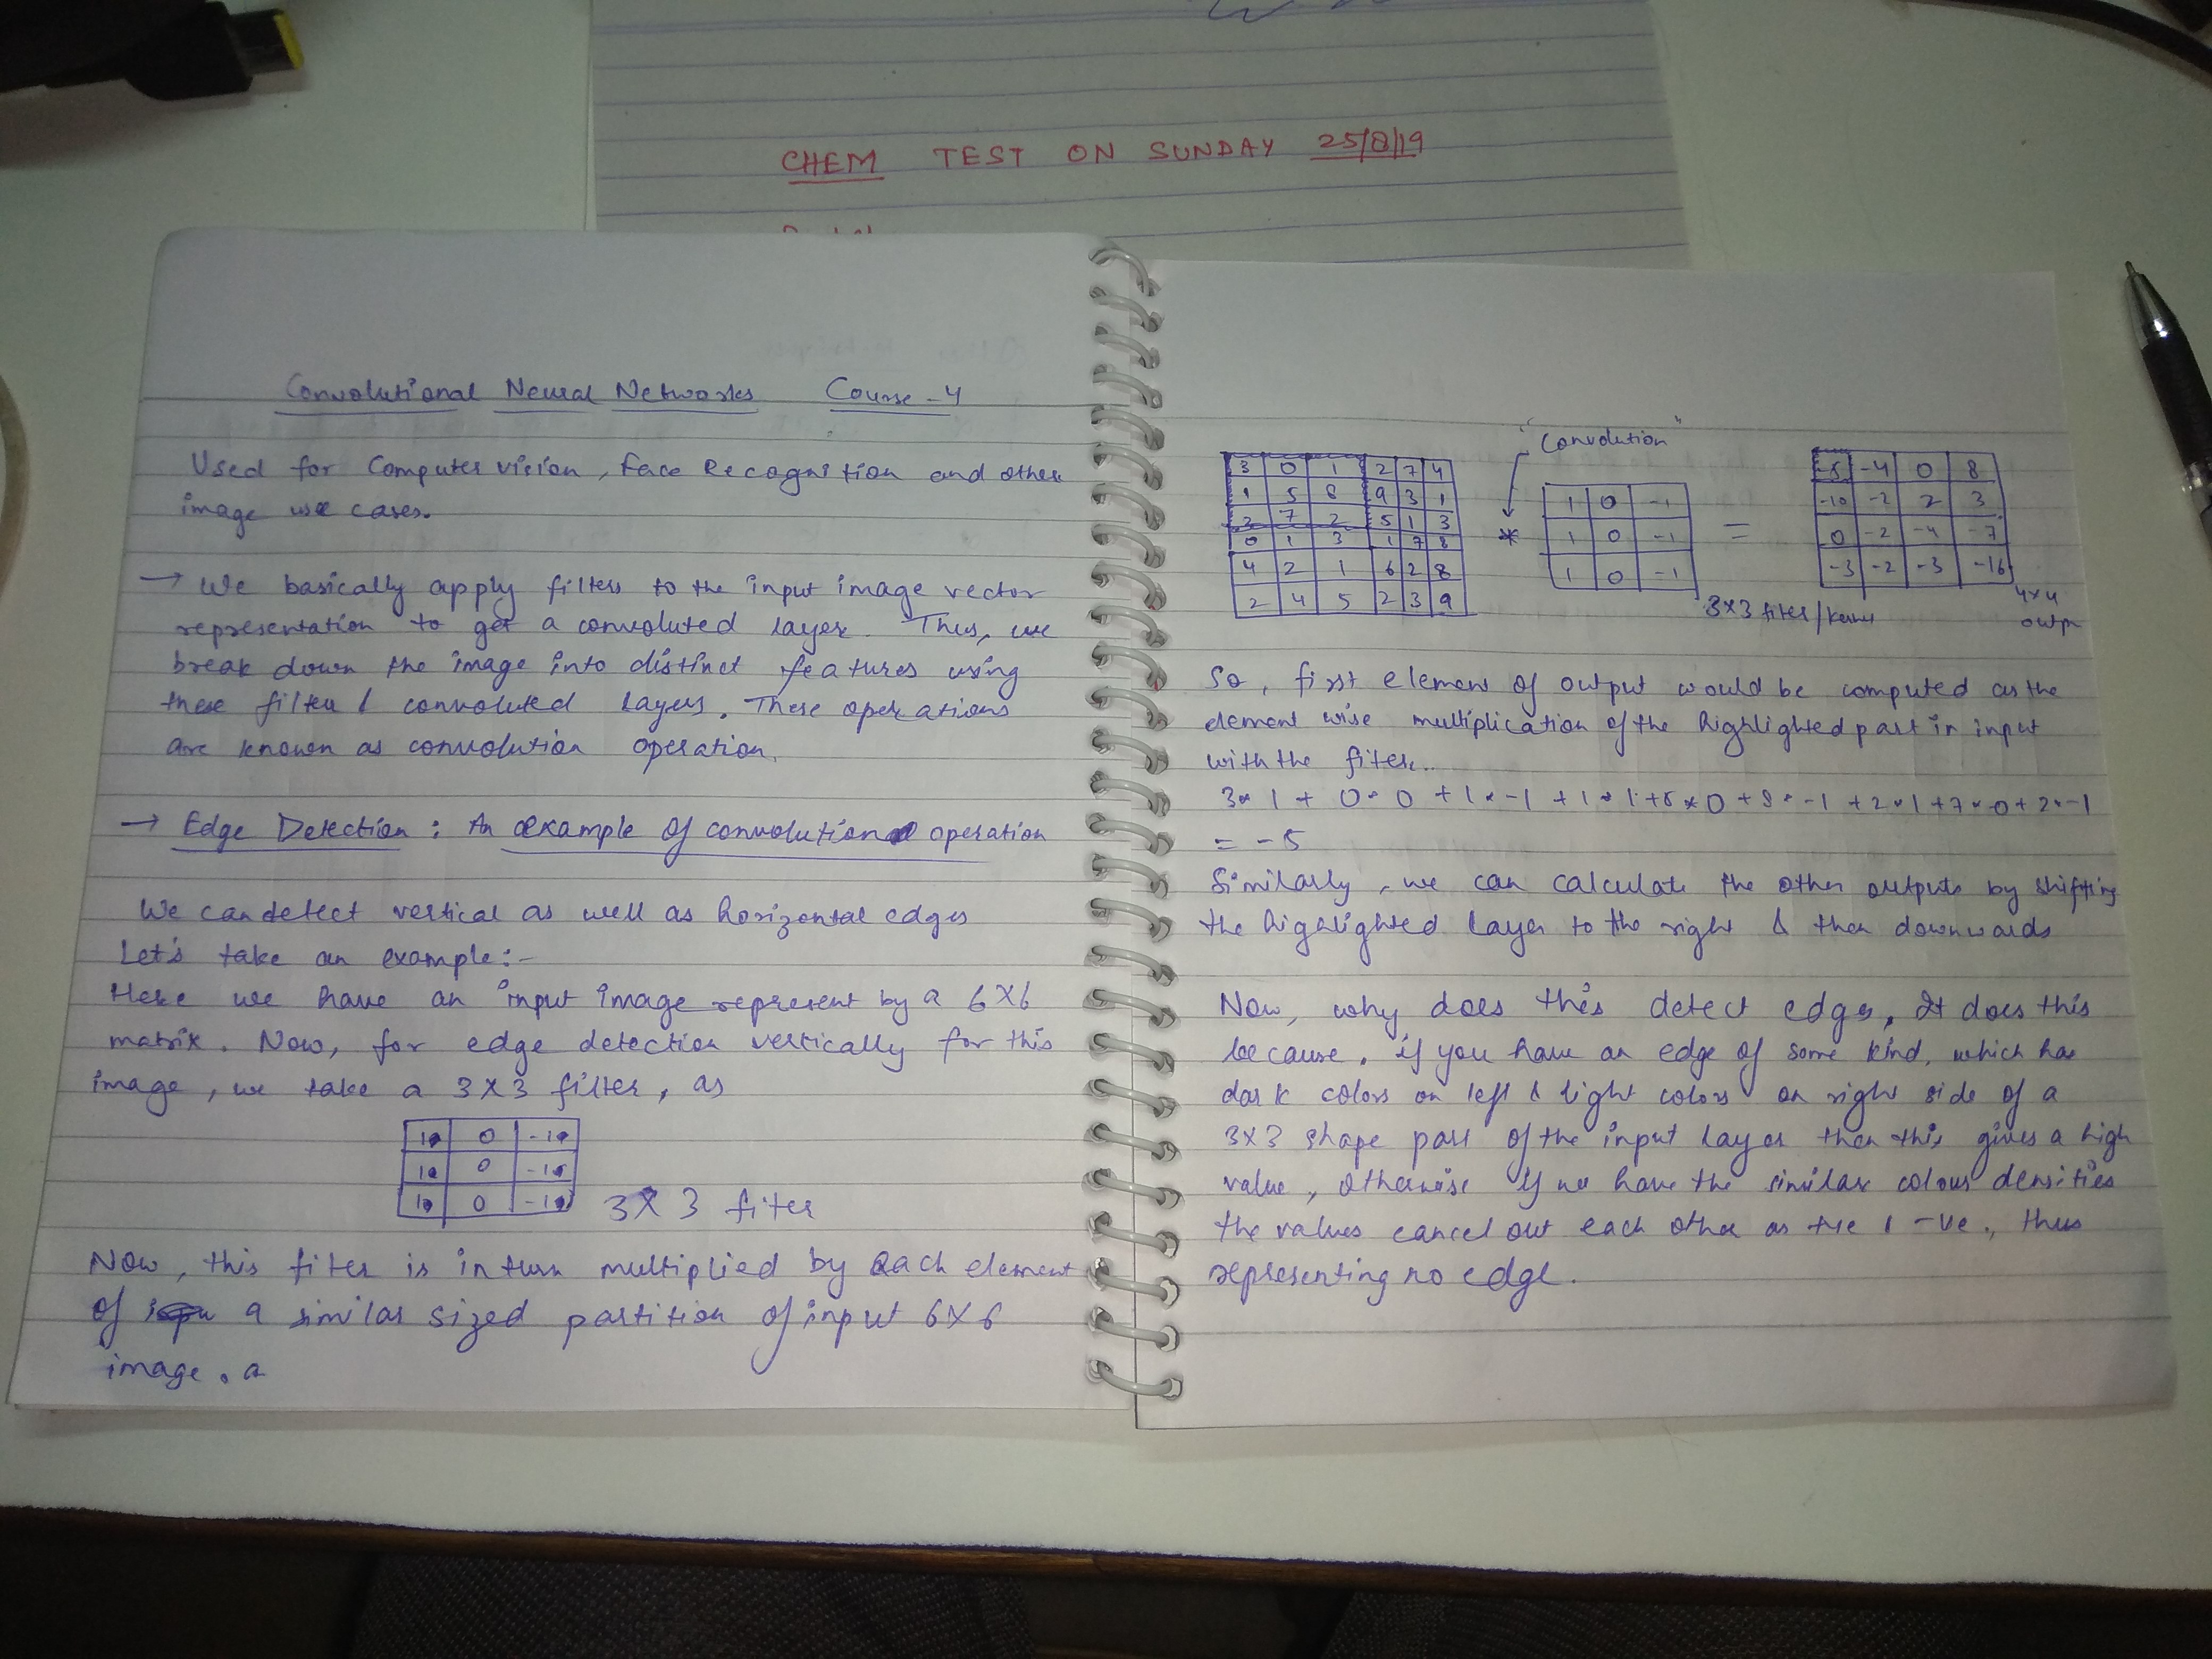 CHEM TEST ON SUNDAY 25/8/19
Convolutional Neural Networks Course-4
Used for Computer vision, Face Recognition and other
image use cases.
→ We basically apply filters to the input image vector
representation to get a convoluted layer. Thus, we
break down the image into distinct features using
these filter & convoluted layers. These operations
are known as convolution operation.
→ Edge Detection: An example of convolution operation
We can detect vertical as well as horizontal edges
Let's take an example:-
Here we have an input image represent by a 6X6
matrix. Now, for edge detection vertically for this
image, we take a 3X3 filter, as
1 0 -1
1 0 -1
1 0 -1
3X3 filter
Now, this filter is in turn multiplied by each element
of a similar sized partition of input 6X6
image. a
"Convolution"
3 0 1 2 7 4
1 5 8 9 3 1
2 7 2 5 1 3
0 1 3 1 7 8
4 2 1 6 2 8
2 4 5 2 3 9
*
1 0 -1
1 0 -1
1 0 -1
3X3 filter/kernel
=
-5 -4 0 8
-10 -2 2 3
0 -2 -4 -7
-3 -2 -3 -16
4x4
outp
So, first element of output would be computed as the
element wise multiplication of the highlighted part in input
with the filter..
3*1 + 0*0 + 1*-1 + 1*1 + 5*0 + 8*-1 + 2*1 + 7*0 + 2*-1
= -5
Similarly, we can calculate the other outputs by shifting
the highlighted layer to the right & then downwards
Now, why does this detect edges, It does this
because, if you have an edge of some kind, which has
dark colors on left & light colors on right side of a
3X3 shape part of the input layer then this gives a high
value, otherwise if we have the similar colour densities
the values cancel out each other as +ve & -ve, thus
representing no edge.